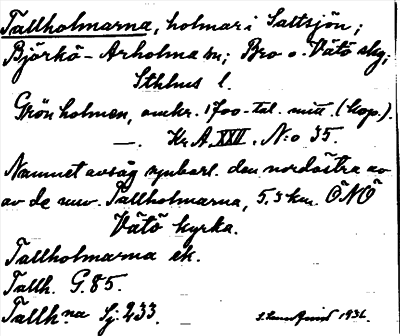 Tallholmarna, holmar i Saltsjön;
Björkö-Arholma sn; Bro o. Vätö skg;
Sthlms l.
Grönholmen, omkr. 1700-tal. mitt. (kop.).
—. Kr A XXII. N:o 35.
Namnet avsåg synbarl. den nordöstra av
av de nuv. Tallholmarna, 5.5 km. ÖNÖ
Vätö kyrka.
Tallholmarna ek.
Tallh. G.85.
Tallh:na Sj. 233.
1936.